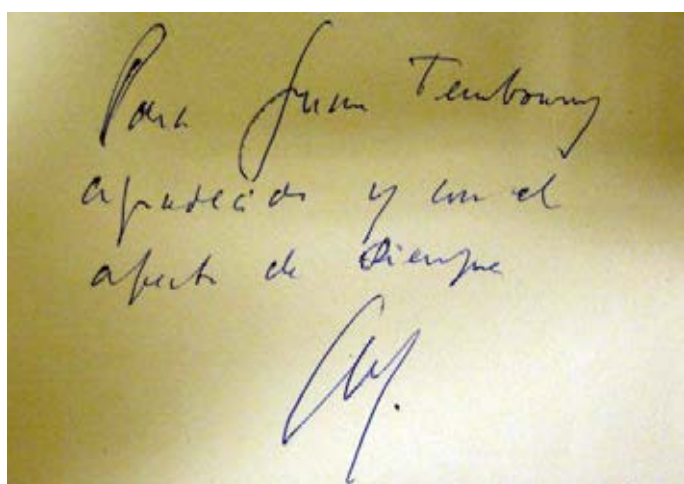 Para Juan Temboury
agradecido y con el
afecto de siempre